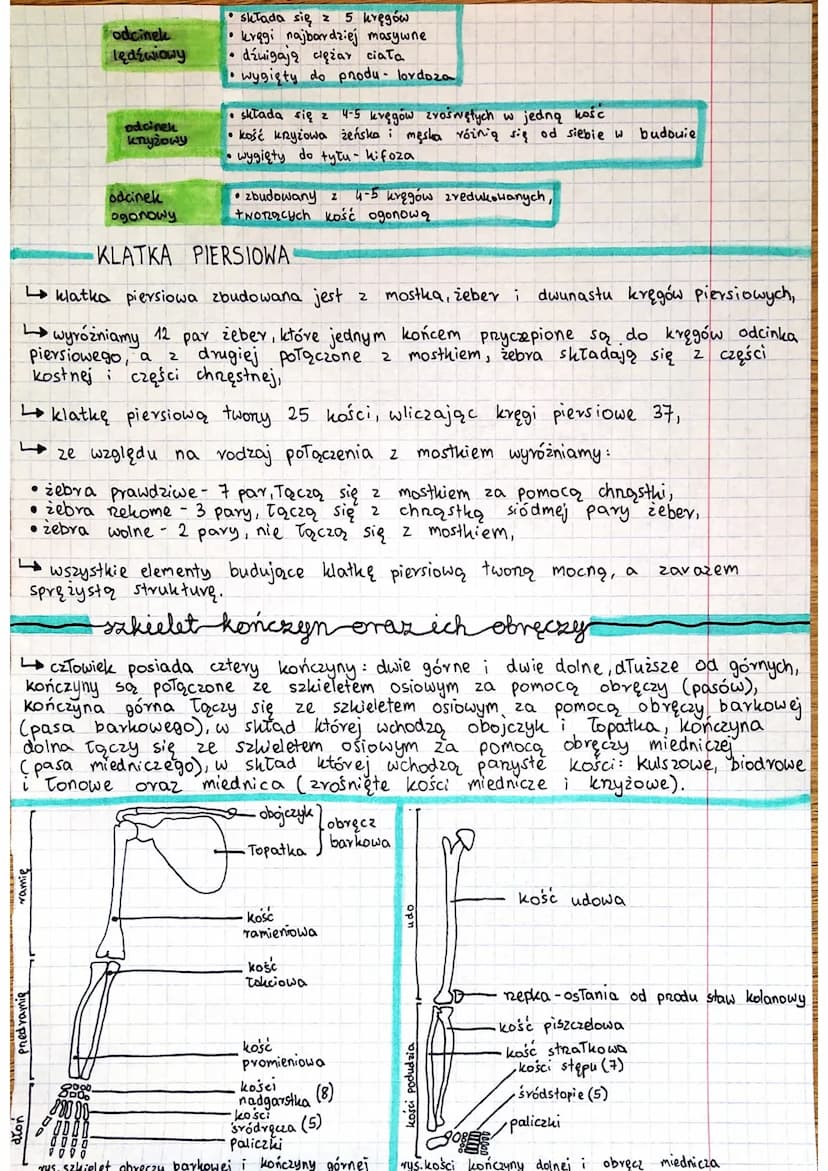 odcinek
lędźwiowy
• składa się z 5 kręgów
• kręgi najbardziej masywne
• dźwigają ciężar ciała
• wygięty do przodu - lordoza
odcinek
krzyżowy
• składa się z 4-5 kręgów zrośniętych w jedną kość
• kość krzyżowa żeńska i męska różnią się od siebie w budowie
• wygięty do tyłu - kifoza
odcinek
ogonowy
• zbudowany z 4-5 kręgów zredukowanych,
tworzących kość ogonową
KLATKA PIERSIOWA
↳ klatka piersiowa zbudowana jest z mostka, żeber i dwunastu kręgów piersiowych,
↳ wyróżniamy 12 par żeber, które jednym końcem przyczepione są do kręgów odcinka
piersiowego, a z drugiej połączone z mostkiem, żebra składają się z części
kostnej i części chrzęstnej,
↳ klatkę piersiową tworzy 25 kości, wliczając kręgi piersiowe 37,
↳ ze względu na rodzaj połączenia z mostkiem wyróżniamy:
• żebra prawdziwe - 7 par, łączą się z mostkiem za pomocą chrząstki,
• żebra rzekome - 3 pary, łączą się z chrząstką siódmej pary żeber,
• żebra wolne - 2 pary, nie łączą się z mostkiem,
↳ wszystkie elementy budujące klatkę piersiową tworzą mocną, a zarazem
sprężystą strukturę.
szkielet kończyn oraz ich obręczy
↳ człowiek posiada cztery kończyny: dwie górne i dwie dolne, dłuższe od górnych,
kończyny są połączone ze szkieletem osiowym za pomocą obręczy (pasów),
kończyna górna łączy się ze szkieletem osiowym za pomocą obręczy barkowej
(pasa barkowego), w skład której wchodzą obojczyk i łopatka, kończyna
dolna łączy się ze szkieletem osiowym za pomocą obręczy miedniczej
(pasa miedniczego), w skład której wchodzą parzyste kości: kulszowe, biodrowe
i łonowe oraz miednica (zrośnięte kości miednicze i krzyżowe).
obojczyk
łopatka
obręcz
barkowa
ramię
kość
ramieniowa
kość
łokciowa
przedramię
kość
promieniowa
kości
nadgarstka (8)
kości
śródręcza (5)
paliczki
dłoń
rys. szkielet obręczy barkowej i kończyny górnej
udo
kość udowa
rzepka - osłania od przodu staw kolanowy
kość piszczelowa
kość strzałkowa
kości stępu (7)
śródstopie (5)
paliczki
kości podudzia
rys. kości kończyny dolnej i obręcz miednicza